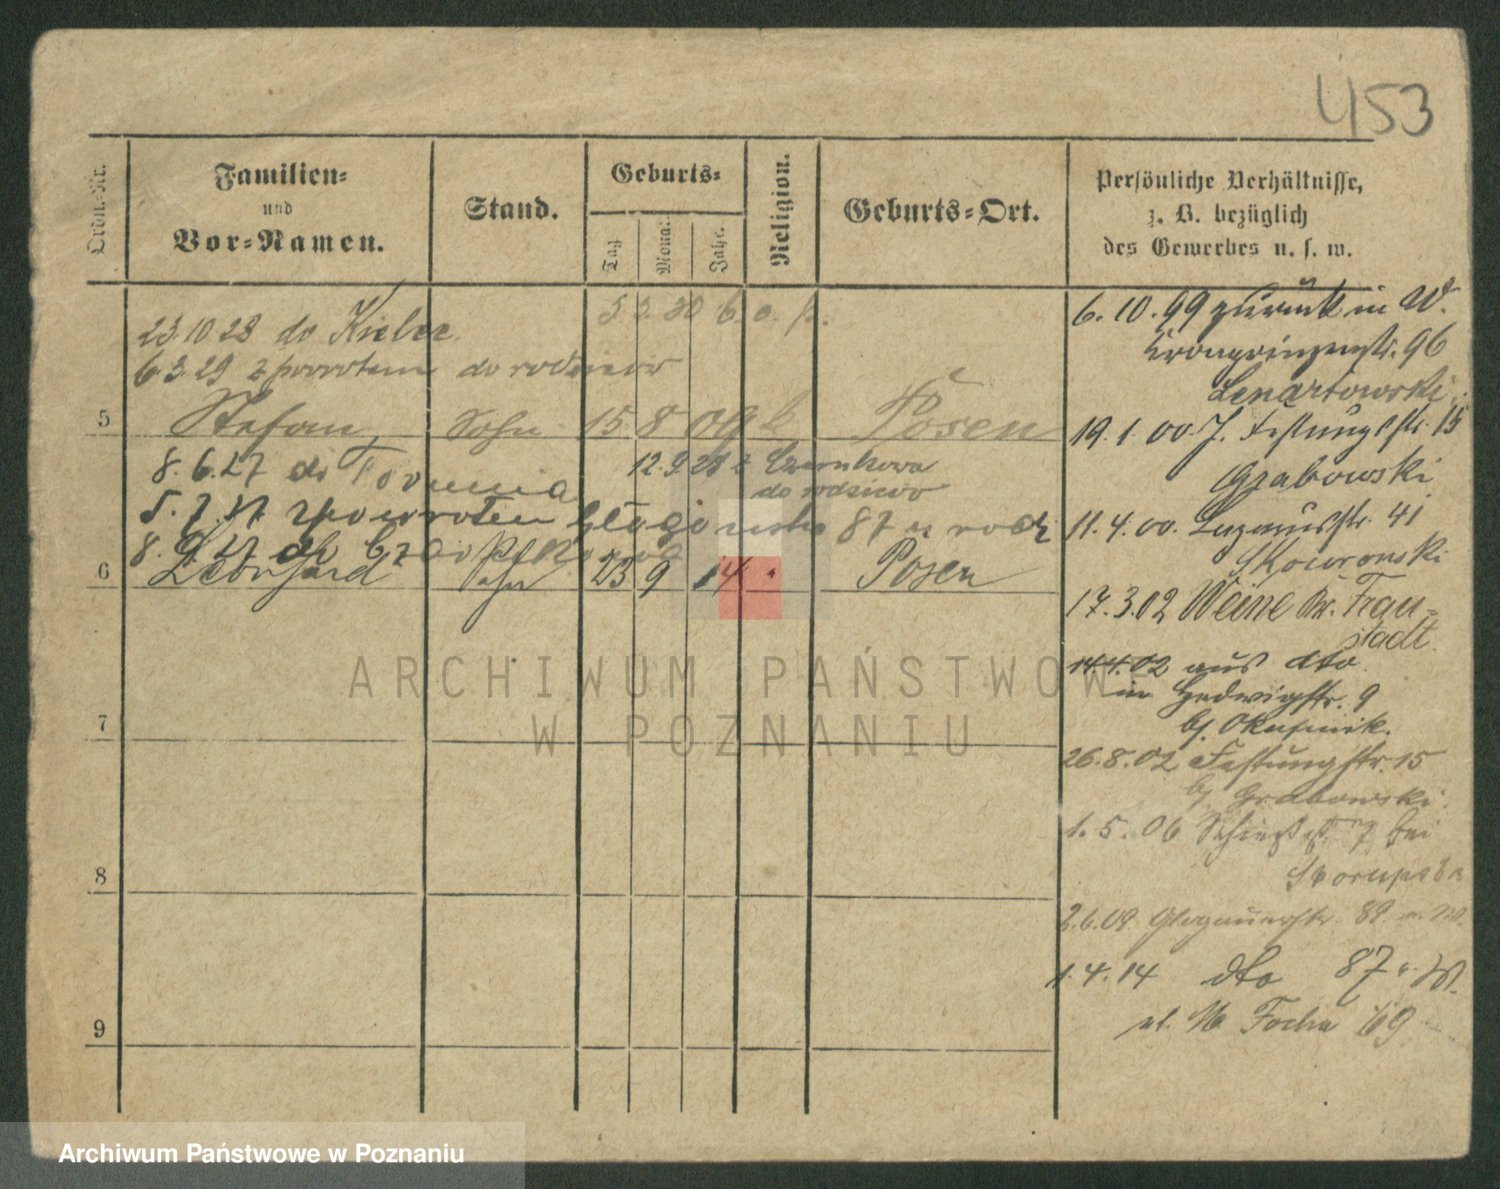 453
Ordn.-Nr.
Familien-
und
Vor-Namen.
Stand.
Geburts-
Tag
Monat
Jahr.
Religion.
Geburts-Ort.
Persönliche Verhältnisse,
z. B. bezüglich
des Gewerbes u. s. w.
23.10.28 do Kielce
6.3.29 z powrotem do rodziców
5 Stefan Sohn 15 8 09 k Posen
8.6.27 do Torunia
12.9.28 z Czarnkowa
do rodziców
5.7.27 z powrotem 87 u rodz
8.9.27
6 Leonhard Sohn 25 9 14 " Posen
7
8
9
6.10.99 zurück in W.
Kronprinzenstr. 96
Lenartowski
19.1.00. J. Festungsstr. 15
Grabowski
11.4.00. Lazarusstr. 41
Skowronski
17.3.02 Weine Kr. Frau-
stadt.
14.4.02 aus dto
in Hedwigstr. 9
bj. Okupnik.
26.8.02 Festungstr. 15
bj Grabowski.
1.5.06 7 bei
Skorupska
2.6.09. Glogauerstr. 89.
1.4.14 dto 87 W.
ul. M Focha 69
ARCHIWUM PAŃSTWOW
W POZNANIU
Archiwum Państwowe w Poznaniu